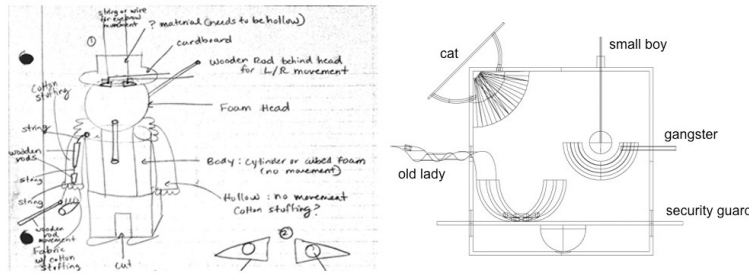 string or wire
for eyebrow
movement
? material (needs to be hollow)
①
cardboard
wooden Rod behind head
for L/R movement
Cotton
stuffing
Foam Head
string
wooden
rods
Body: Cylinder or cubed foam
(no movement)
string
string
Hollow: no movement
Cotton stuffing?
wooden
rod
movement
Fabric
w/ cotton
stuffing
cut
②
cat
small boy
gangster
old lady
security guard